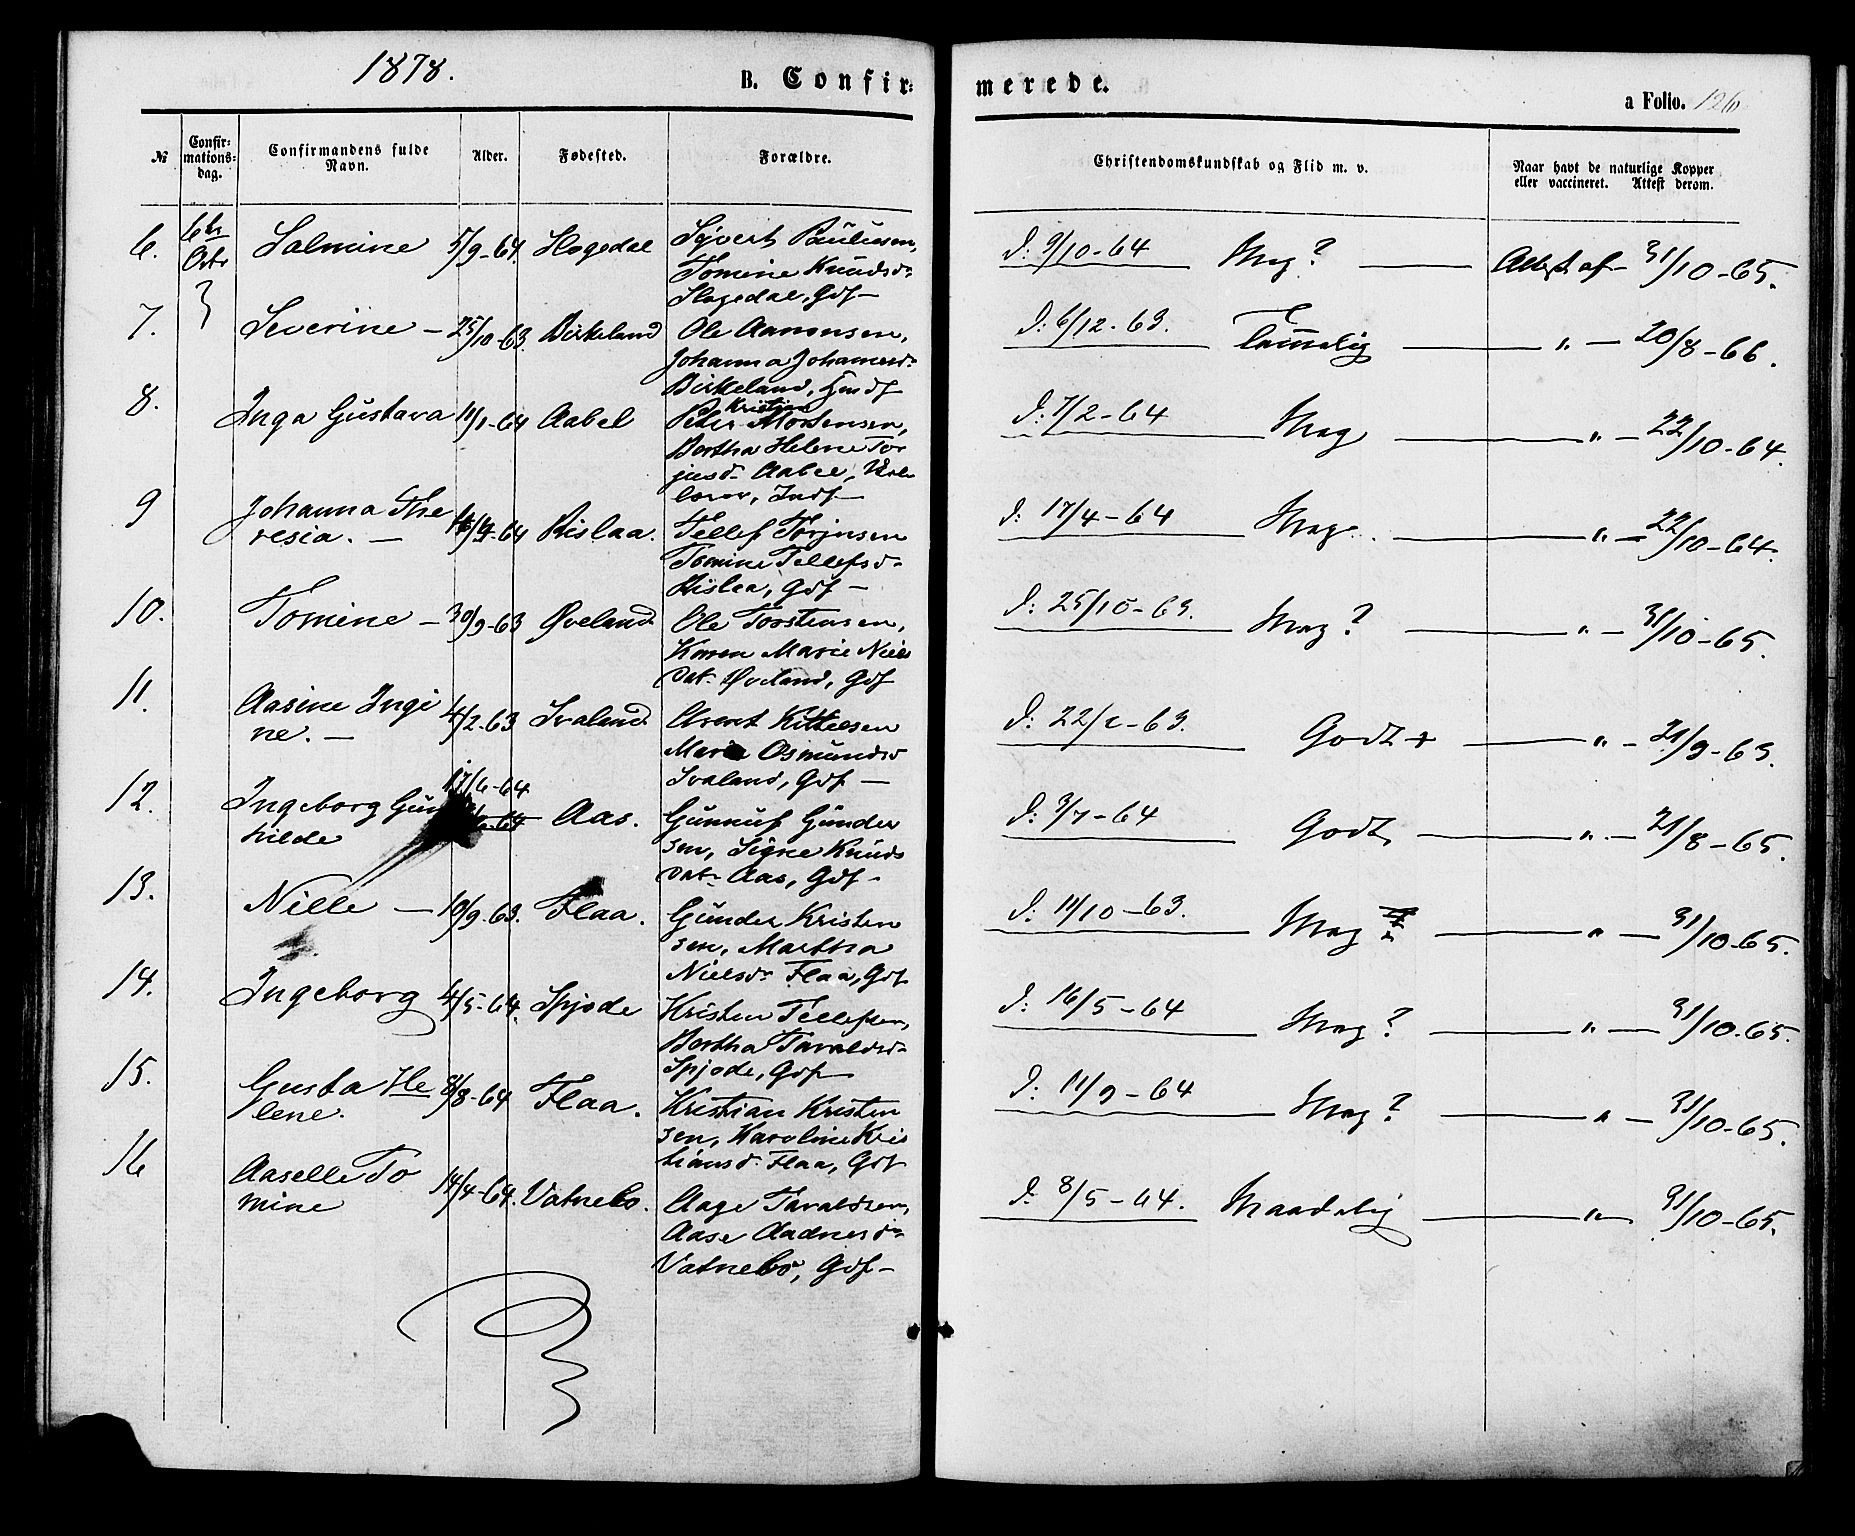 1878.
B. Confir=
merede.
a Folio. 126
№
Confir=
mations=
dag.
Confirmandens fulde
Navn.
Alder.
Fødested.
Forældre.
Christendomskundskab og Flid m. v.
Naar havt de naturlige Kopper
eller vaccineret. Attest derom.
6. 6te Octbr Salmine 5/9-64. Hogedal Syvert Paulusen,
Tomine Knudsdr
Hogedal, Gdf— D: 9/10-64 Mag? Attest af — 31/10-65.
7. Severine — 25/10-63. Birkeland Ole Aanonsen,
Johanna Johannesdr
Birkeland, D: 6/12-63. Tammelig " — 20/8-66.
8. Inga Gustava 11/1-64 Aabel Peter Kristian Mortensen,
Bertha Helene Tor
jusdr Aabel,
lærer, Indf— D: 7/2-64 Mag " — 22/10-64.
9 Johanna The
resia. — 64 Rislaa. Tellef Torjusen
Tomine Tellefsdr
Rislaa, Gdf — D: 17/4-64 Mag. " — 22/10-64.
10. Tomine — 30/9-63 Øveland Ole Torstensen,
Karen Marie Niels
dat. Øveland, Gdf D: 25/10-63. Mag? " — 31/10-65.
11. Aasine Ingi
ne. — 4/2-63 Ivaland Kittelsen
Maria Osmundsd
Ivaland, Gdf — D: 22/2-63. Godt + " — 21/9-63.
12. Ingeborg Gun
hilde 17/6-64 Aas. Gunnuf Gunder
sen, Signe Knuds
dat. Aas, Gdf — D: 3/7-64 Godt " — 21/8-65.
13. Nille — 10/9-63. Flaa. Gunder Kristen
sen, Martha
Nielsdr Flaa, Gdf D: 11/10-63. Mag " — 31/10-65.
14. Ingeborg 4/5-64. Spjode Kristen Tellefsen,
Bertha Taraldsdr
Spjode, Gdf — D: 16/5-64 Mag? " — 31/10-65.
15. Gusta He
lene. 8/8-64 Flaa. Kristian Kristen
sen, Karoline Kris
tiansd. Flaa, Gdf D: 11/9-64 Mag? " — 31/10-65.
16 Aaselle To
mine 14/4-64. Vatnebo. Aage Taraldsen,
Aase Aadnesdr
Vatnebo, Gdf — D: 8/5-64. Maadelig " — 31/10-65.